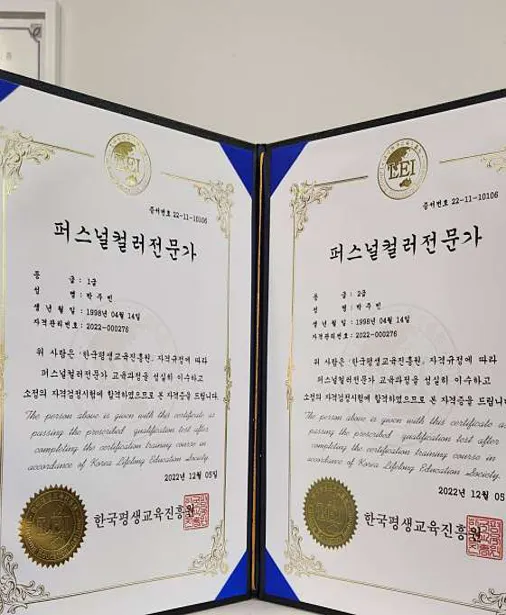 LEI
증서번호 22-11-10106
퍼스널컬러전문가
등 급 : 1급
성 명 : 박 주 빈
생 년 월 일 : 1998년 04월 14일
자격관리번호 : 2022-000276
위 사람은 '한국평생교육진흥원, 자격규정에 따라
퍼스널컬러전문가 교육과정을 성실히 이수하고
소정의 자격검정시험에 합격하였으므로 본 자격증을 드립니다.
The person above is given with this certificate as
passing the prescribed qualification test after
completing the certification training course in
accordance of Korea Lifelong Education Society.
2022년 12월 05일
한국평생교육진흥원
LEI
증서번호 22-11-10106
퍼스널컬러전문가
등 급 : 2급
성 명 : 박 주 빈
생 년 월 일 : 1998년 04월 14일
자격관리번호 : 2022-000276
위 사람은 '한국평생교육진흥원, 자격규정에 따라
퍼스널컬러전문가 교육과정을 성실히 이수하고
소정의 자격검정시험에 합격하였으므로 본 자격증을 드립니다
The person above is given with this certificate as
passing the prescribed qualification test after
completing the certification training course in
accordance of Korea Lifelong Education Society.
2022년 12월 05
한국평생교육진흥원